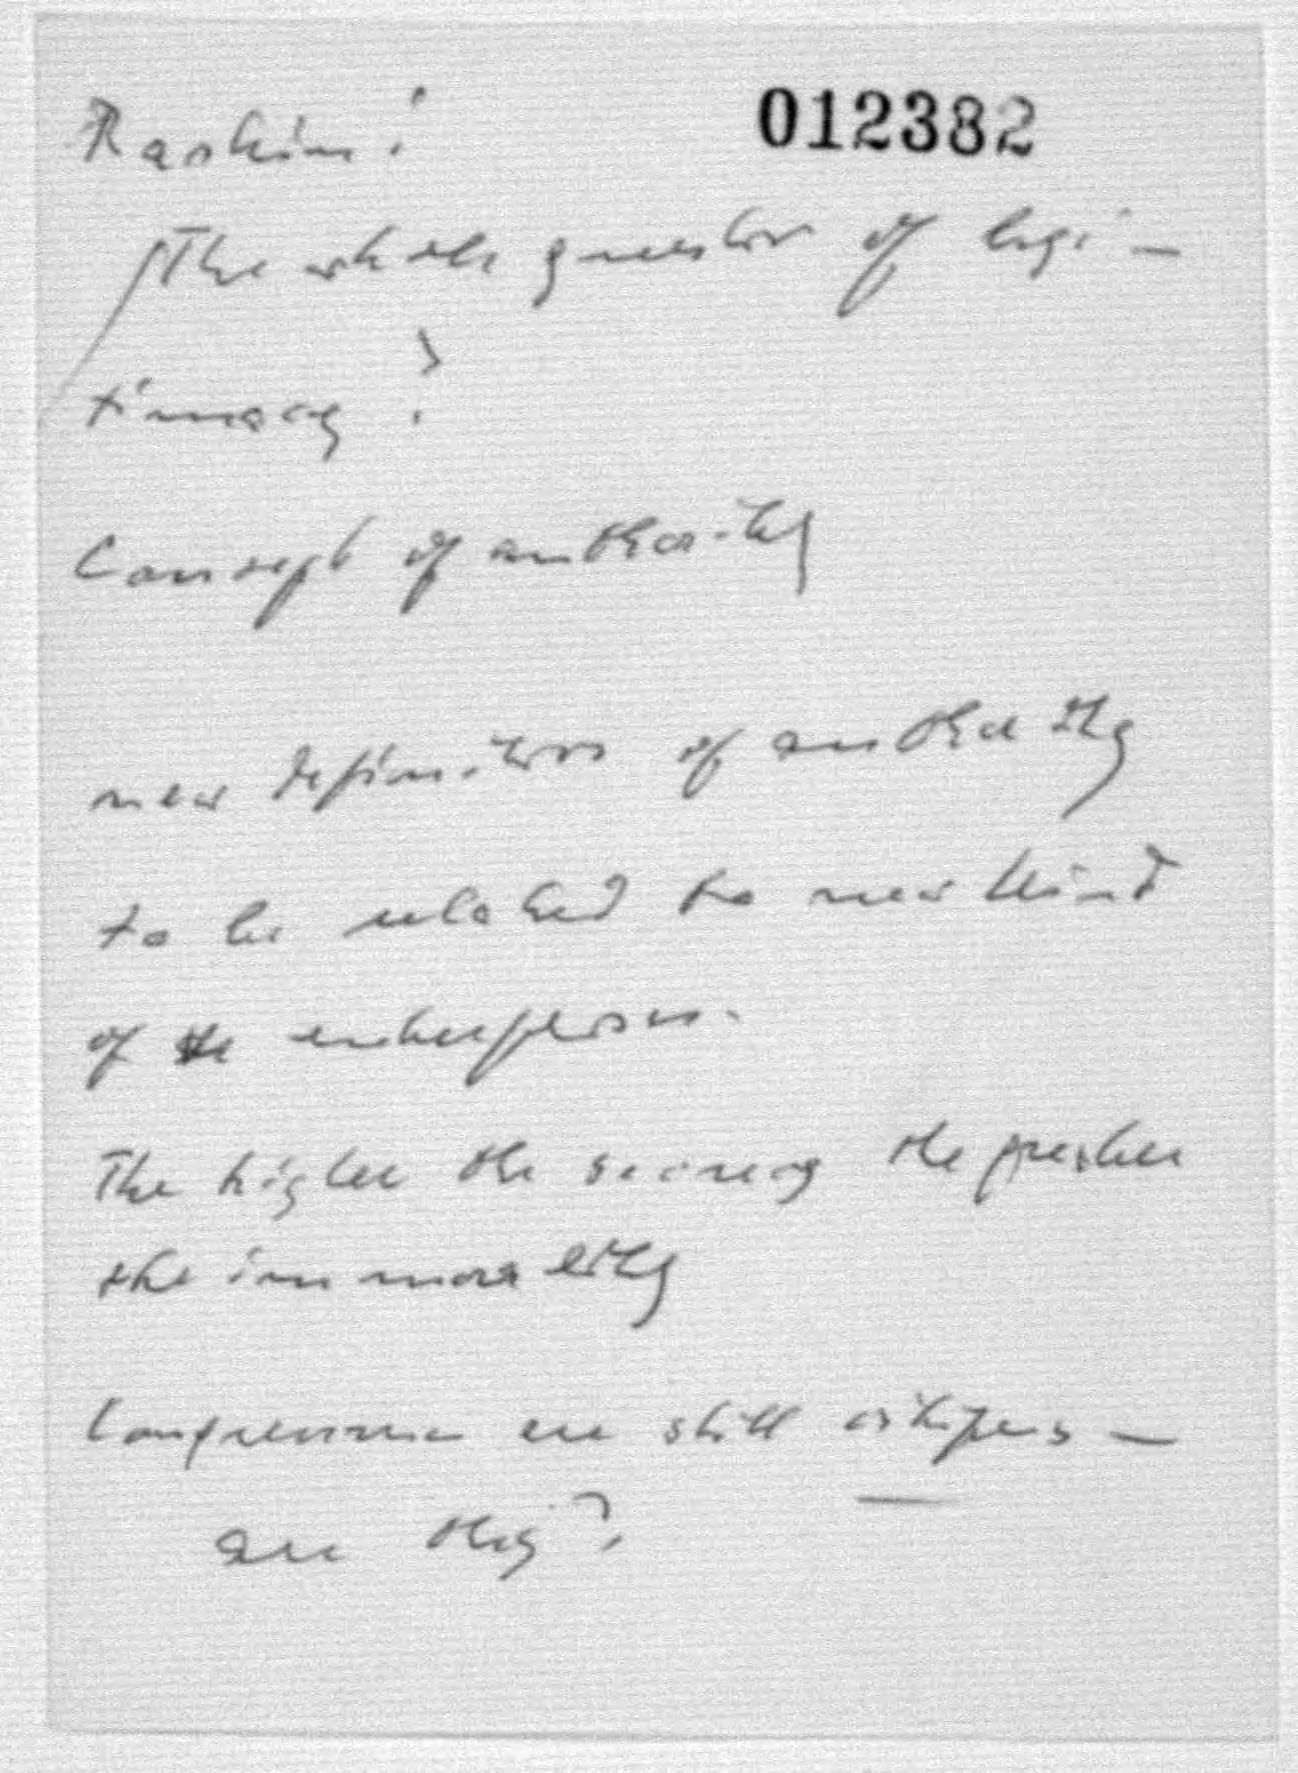 Raskin:
012382
The whole question of legi-
timacy?
Concept of authority
new definition of authority
to be related to new kind
of the enterprises.
The higher the secrecy the greater
the immorality
Congressmen are still citizens -
are they?